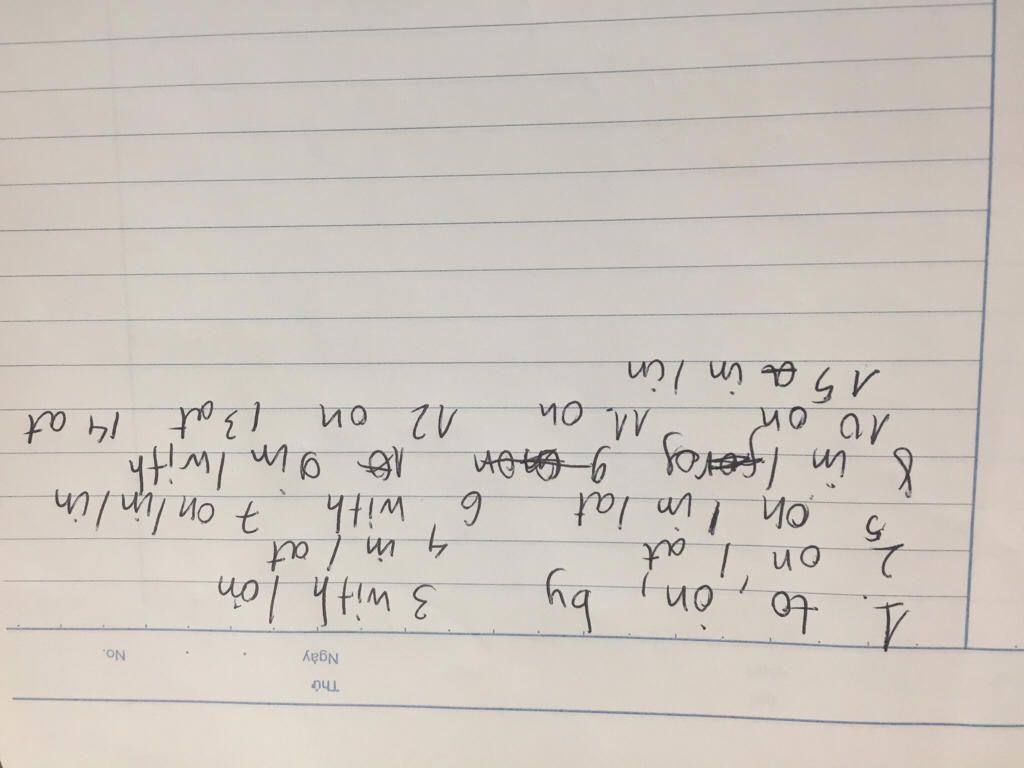 Thứ
Ngày No.
1. to, on, by 3 with / on
2 on / at 4 in / at
5 on / in / at 6 with 7 on / in / in
8 in / of 9 in / with
10 on 11. on 12 on 13 at 14 at
15 in / in